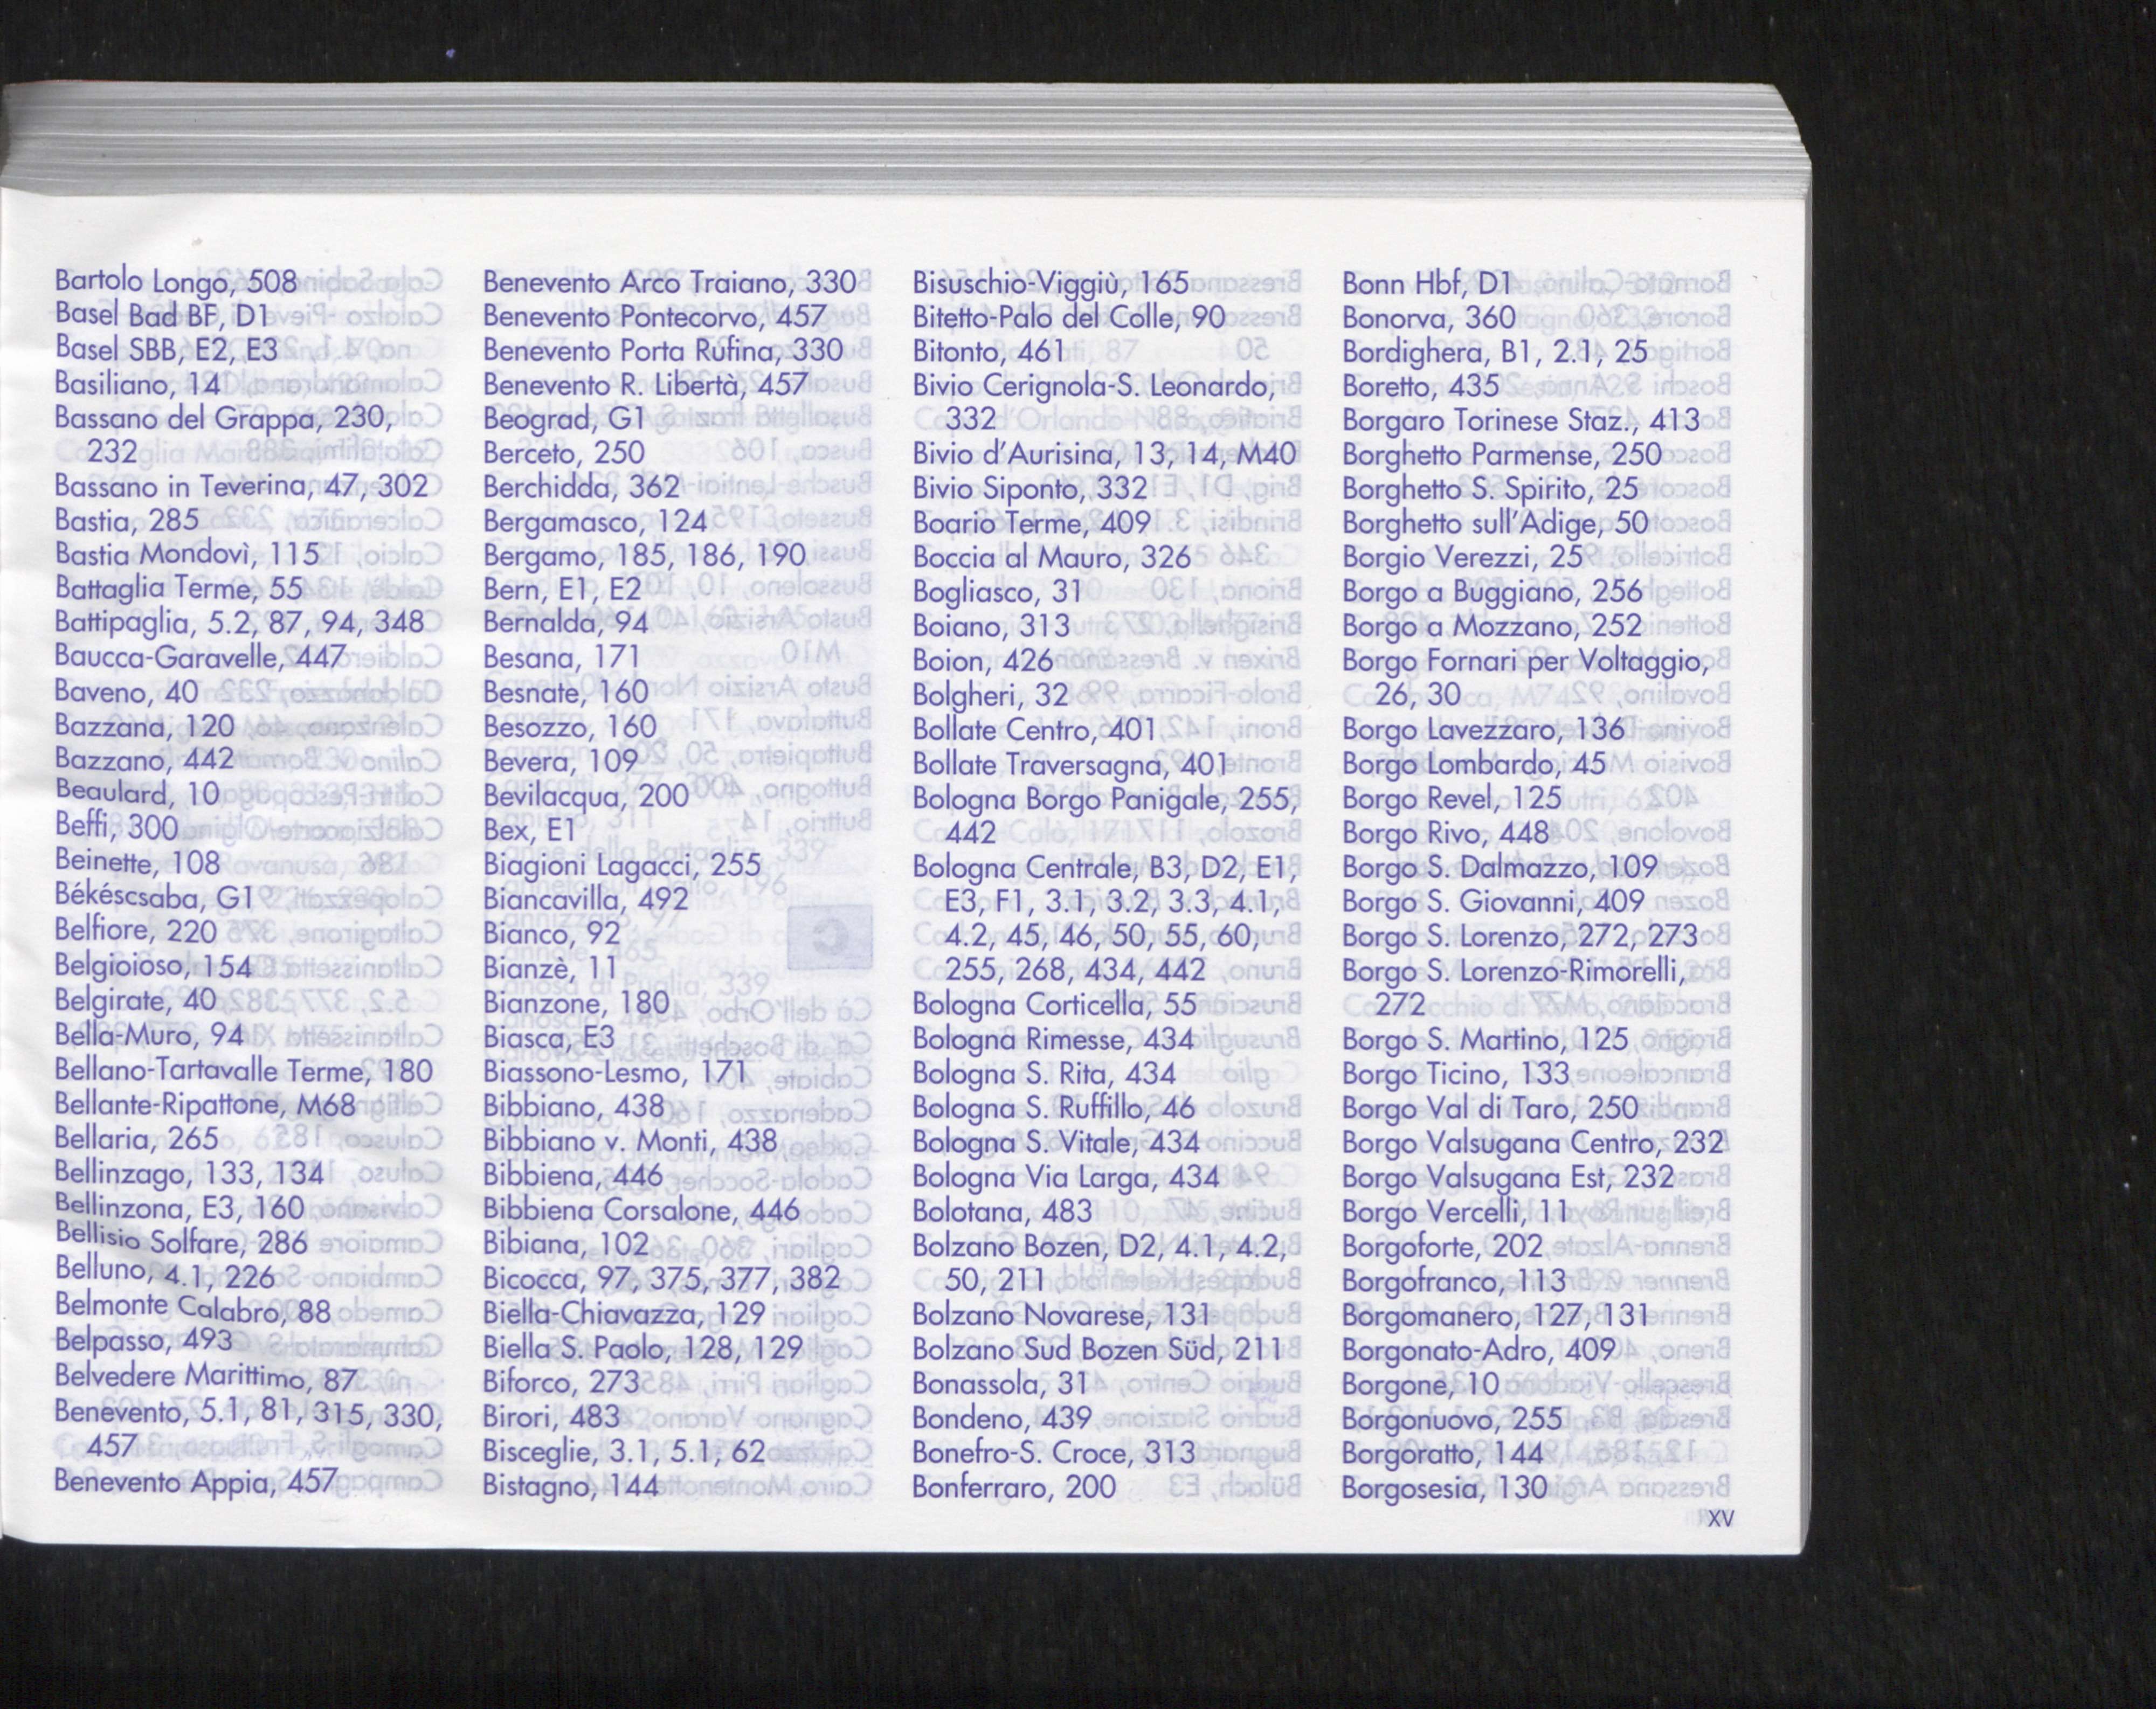 Bartolo Longo, 508
Basel Bad BF, D1
Basel SBB, E2, E3
Basiliano, 14
Bassano del Grappa, 230,
232
Bassano in Teverina, 47, 302
Bastia, 285
Bastia Mondovì, 115
Battaglia Terme, 55
Battipaglia, 5.2, 87, 94, 348
Baucca-Garavelle, 447
Baveno, 40
Bazzana, 120
Bazzano, 442
Beaulard, 10
Beffi, 300
Beinette, 108
Békéscsaba, G1
Belfiore, 220
Belgioioso, 154
Belgirate, 40
Bella-Muro, 94
Bellano-Tartavalle Terme, 180
Bellante-Ripattone, M68
Bellaria, 265
Bellinzago, 133, 134
Bellinzona, E3, 160
Bellisio Solfare, 286
Belluno, 4.1, 226
Belmonte Calabro, 88
Belpasso, 493
Belvedere Marittimo, 87
Benevento, 5.1, 81, 315, 330,
457
Benevento Appia, 457
Benevento Arco Traiano, 330
Benevento Pontecorvo, 457
Benevento Porta Rufina, 330
Benevento R. Libertà, 457
Beograd, G1
Berceto, 250
Berchidda, 362
Bergamasco, 124
Bergamo, 185, 186, 190
Bern, E1, E2
Bernalda, 94
Besana, 171
Besnate, 160
Besozzo, 160
Bevera, 109
Bevilacqua, 200
Bex, E1
Biagioni Lagacci, 255
Biancavilla, 492
Bianco, 92
Bianzè, 11
Bianzone, 180
Biasca, E3
Biassono-Lesmo, 171
Bibbiano, 438
Bibbiano v. Monti, 438
Bibbiena, 446
Bibbiena Corsalone, 446
Bibiana, 102
Bicocca, 97, 375, 377, 382
Biella-Chiavazza, 129
Biella S. Paolo, 128, 129
Biforco, 273
Birori, 483
Bisceglie, 3.1, 5.1, 62
Bistagno, 144
Bisuschio-Viggiù, 165
Bitetto-Palo del Colle, 90
Bitonto, 461
Bivio Cerignola-S. Leonardo,
332
Bivio d'Aurisina, 13, 14, M40
Bivio Siponto, 332
Boario Terme, 409
Boccia al Mauro, 326
Bogliasco, 31
Boiano, 313
Boion, 426
Bolgheri, 32
Bollate Centro, 401
Bollate Traversagna, 401
Bologna Borgo Panigale, 255,
442
Bologna Centrale, B3, D2, E1,
E3, F1, 3.1, 3.2, 3.3, 4.1,
4.2, 45, 46, 50, 55, 60,
255, 268, 434, 442
Bologna Corticella, 55
Bologna Rimesse, 434
Bologna S. Rita, 434
Bologna S. Ruffillo, 46
Bologna S. Vitale, 434
Bologna Via Larga, 434
Bolotana, 483
Bolzano Bozen, D2, 4.1, 4.2,
50, 211
Bolzano Novarese, 131
Bolzano Sud Bozen Süd, 211
Bonassola, 31
Bondeno, 439
Bonefro-S. Croce, 313
Bonferraro, 200
Bonn Hbf, D1
Bonorva, 360
Bordighera, B1, 2.1, 25
Boretto, 435
Borgaro Torinese Staz., 413
Borghetto Parmense, 250
Borghetto S. Spirito, 25
Borghetto sull'Adige, 50
Borgio Verezzi, 25
Borgo a Buggiano, 256
Borgo a Mozzano, 252
Borgo Fornari per Voltaggio,
26, 30
Borgo Lavezzaro, 136
Borgo Lombardo, 45
Borgo Revel, 125
Borgo Rivo, 448
Borgo S. Dalmazzo, 109
Borgo S. Giovanni, 409
Borgo S. Lorenzo, 272, 273
Borgo S. Lorenzo-Rimorelli,
272
Borgo S. Martino, 125
Borgo Ticino, 133
Borgo Val di Taro, 250
Borgo Valsugana Centro, 232
Borgo Valsugana Est, 232
Borgo Vercelli, 11
Borgoforte, 202
Borgofranco, 113
Borgomanero, 127, 131
Borgonato-Adro, 409
Borgone, 10
Borgonuovo, 255
Borgoratto, 144
Borgosesia, 130
XV